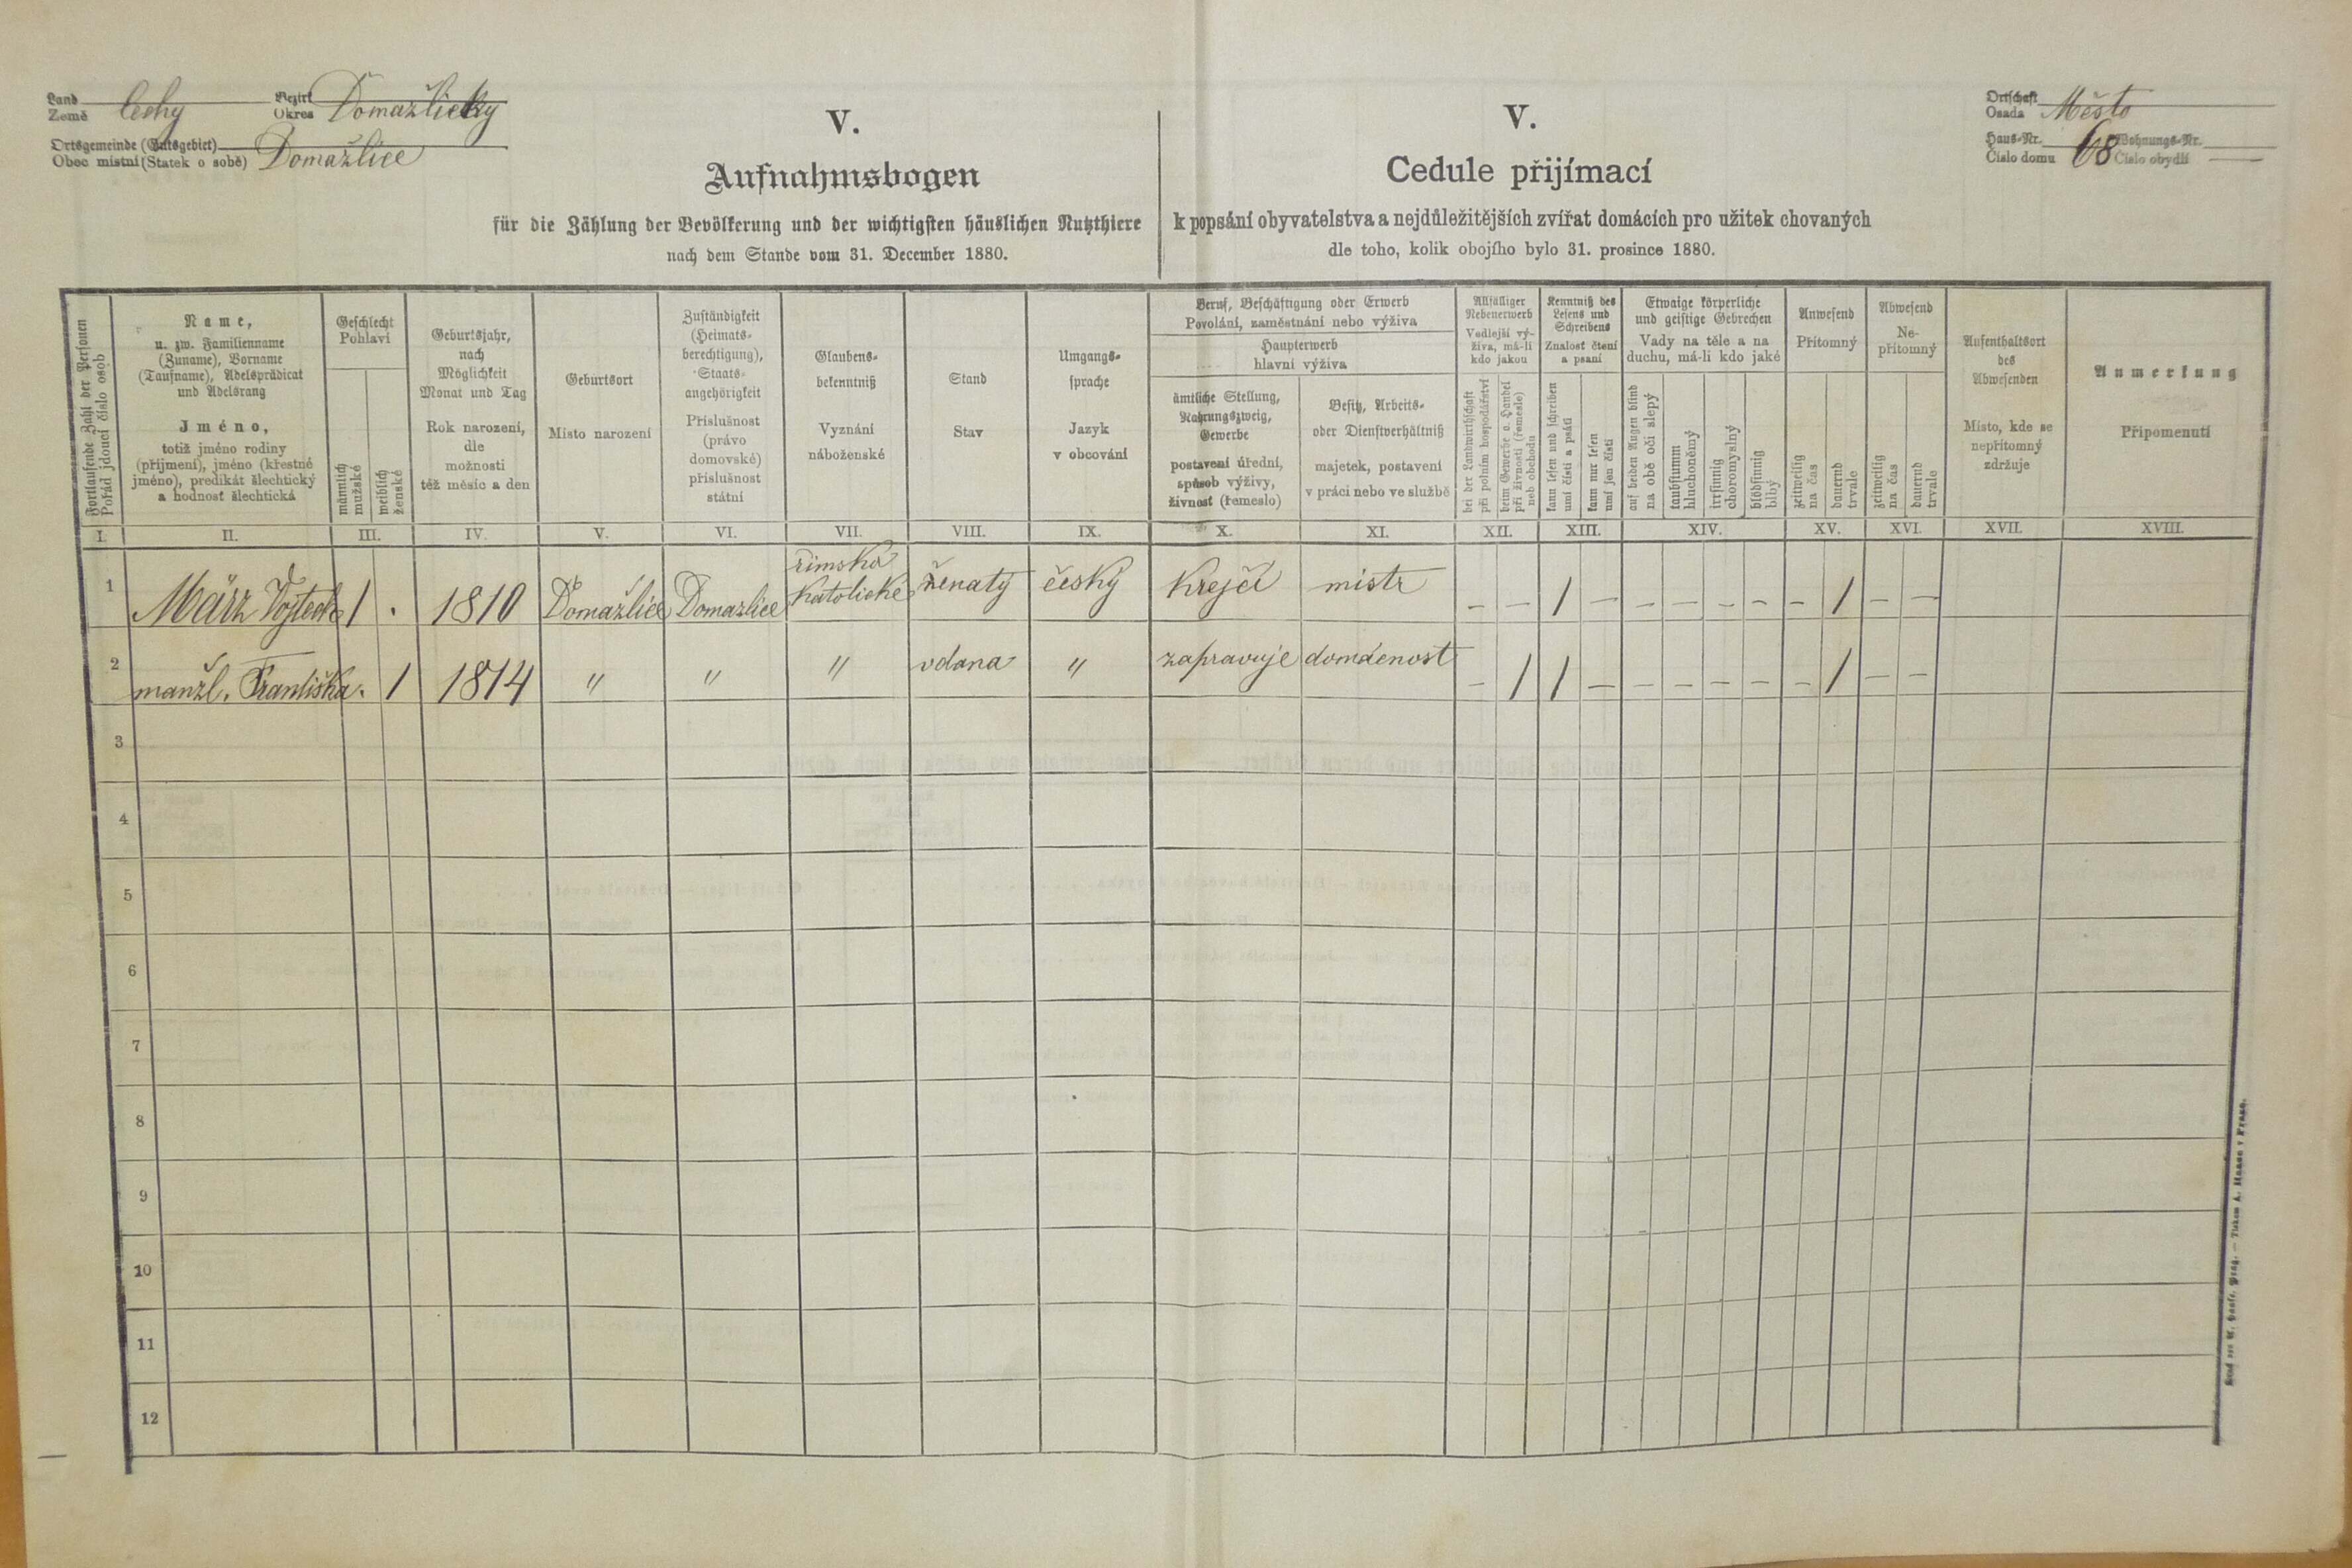 Land
Země Čechy
Bezirk
Okres Domažlický
Ortsgemeinde (Gutsgebiet)
Obec místní (Statek o sobě) Domažlice
V.
Aufnahmsbogen
für die Zählung der Bevölkerung und der wichtigsten häuslichen Nutzthiere
nach dem Stande vom 31. December 1880.
V.
Cedule přijímací
k popsání obyvatelstva a nejdůležitějších zvířat domácích pro užitek chovaných
dle toho, kolik obojího bylo 31. prosince 1880.
Ortschaft
Osada Město
Haus-Nr. Wohnungs-Nr.
Číslo domu 68 Číslo obydlí —
Fortlaufende Zahl der Personen
Pořád jdoucí číslo osob
Name,
u. zw. Familienname
(Zuname), Vorname
(Taufname), Adelsprädicat
und Adelsrang
Jméno,
totiž jméno rodiny
(příjmení), jméno (křestné
jméno), predikát šlechtický
a hodnosť šlechtická
Geschlecht
Pohlaví
männlich
mužské
weiblich
ženské
Geburtsjahr,
nach
Möglichkeit
Monat und Tag
Rok narození,
dle
možnosti
též měsíc a den
Geburtsort
Místo narození
Zuständigkeit
(Heimats-
berechtigung),
Staats-
angehörigkeit
Příslušnost
(právo
domovské)
příslušnost
státní
Glaubens-
bekenntniß
Vyznání
náboženské
Stand
Stav
Umgangs-
sprache
Jazyk
v obcování
Beruf, Beschäftigung oder Erwerb
Povolání, zaměstnání nebo výživa
Haupterwerb
hlavní výživa
ämtliche Stellung,
Nahrungszweig,
Gewerbe
postavení úřední,
spůsob výživy,
živnosť (řemeslo)
Besitz, Arbeits-
oder Dienstverhältniß
majetek, postavení
v práci nebo ve službě
Allfälliger
Nebenerwerb
Vedlejší vý-
živa, má-li
kdo jakou
bei der Landwirthschaft
při polním hospodářství
beim Gewerbe o. Handel
při živnosti (řemesle)
neb obchodu
Kenntniß des
Lesens und
Schreibens
Znalosť čtení
a psaní
kann lesen und schreiben
umí čísti a psáti
kann nur lesen
umí jen čísti
Etwaige körperliche
und geistige Gebrechen
Vady na těle a na
duchu, má-li kdo jaké
auf beiden Augen blind
na obě oči slepý
taubstumm
hluchoněmý
irrsinnig
choromyslný
blödsinnig
blbý
Anwesend
Přítomný
zeitweilig
na čas
dauernd
trvale
Abwesend
Ne-
přítomný
zeitweilig
na čas
dauernd
trvale
Aufenthaltsort
des
Abwesenden
Místo, kde se
nepřítomný
zdržuje
Anmerkung
Připomenutí
I. II. III. IV. V. VI. VII. VIII. IX. X. XI. XII. XIII. XIV. XV. XVI. XVII. XVIII.
1 März Vojtěch 1 . 1810 Domažlice Domazlice římsko katolické ženatý český Krejčí mistr – – 1 – – – – – – 1 – –
2 manžl. Františka . 1 1814 " " " vdana " zapravuje domácnost – 1 1 – – – – – – 1 – –
3
4
5
6
7
8
9
10
11
12